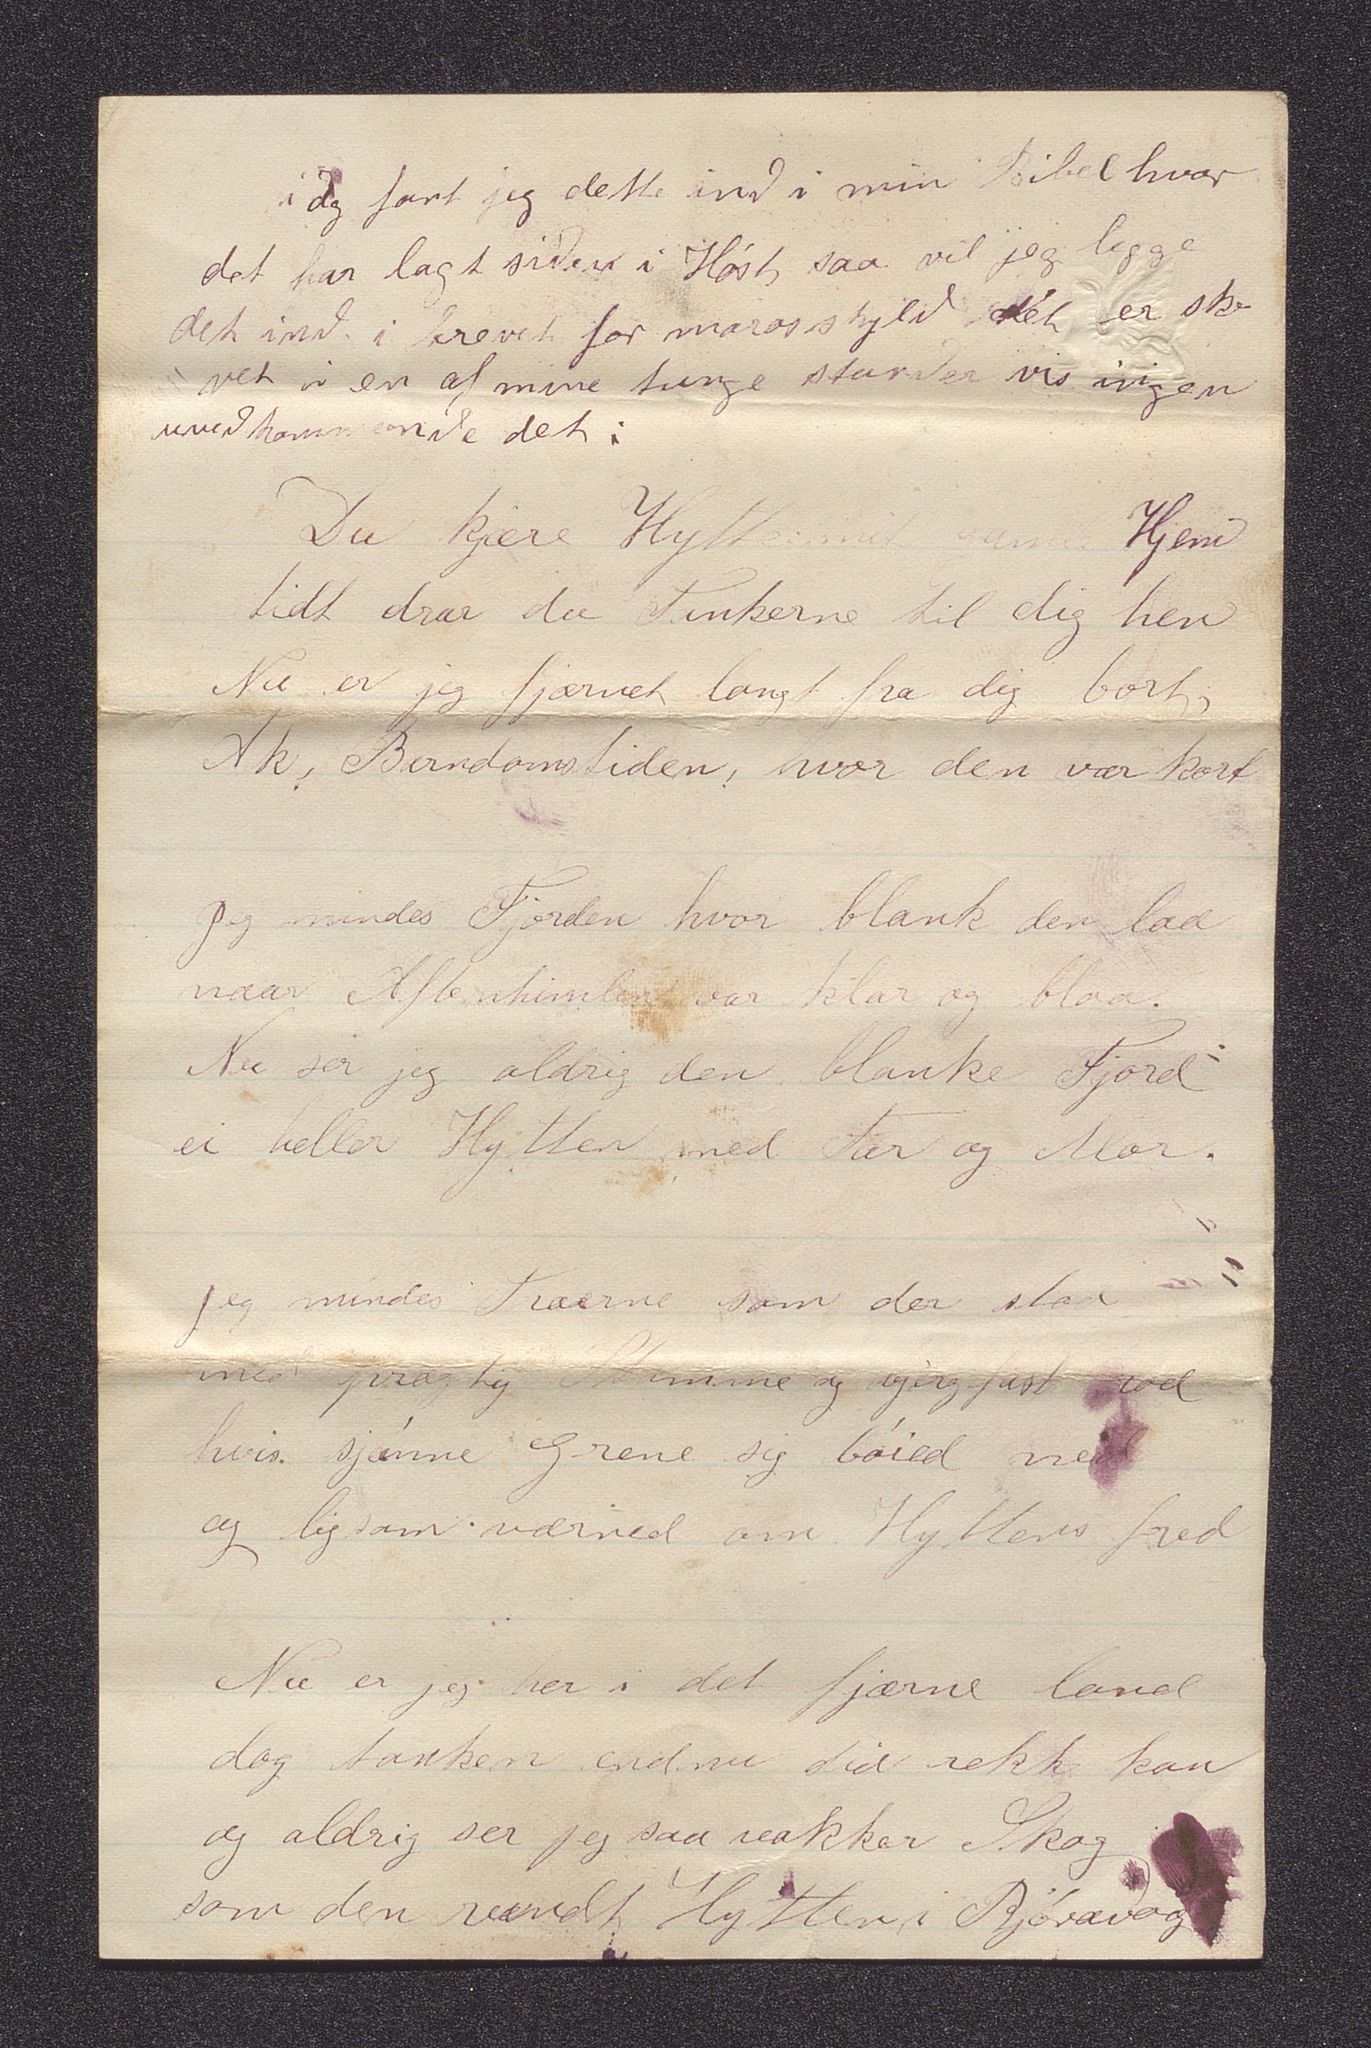 idg fant jeg dette ind i min Bibel hvor
det har lagt siden i Høst, saa vil jeg legge
det ind i brevet for moros skyld det er ske
vet i en af mine tunge stunder vis ingen
uvedkommende det:
Du kjære Hytte mit Hjem
tidt drar du Tankerne til dig hen
Nu er jeg fjærnet langt fra dig bort,
Ak, Barndomstiden, hvor den var kort
Jeg mindes Fjorden hvor blank den laa
naar Aftenhimlen var klar og blaa.
Nu ser jeg aldrig den blanke Fjord
ei heller Hytten med Far og Mor.
Jeg mindes Træerne som der staa
med prægtig Stamme og bjergfast rod
hvis sjønne Grene sig bøied ned
og ligsom værned om Hyttens fred
Nu er jeg her i det fjærne land
dog tanken endnu did rekke kan
og aldrig ser jeg saa vakker Skog
som den rundt Hytten i Bjóravaag